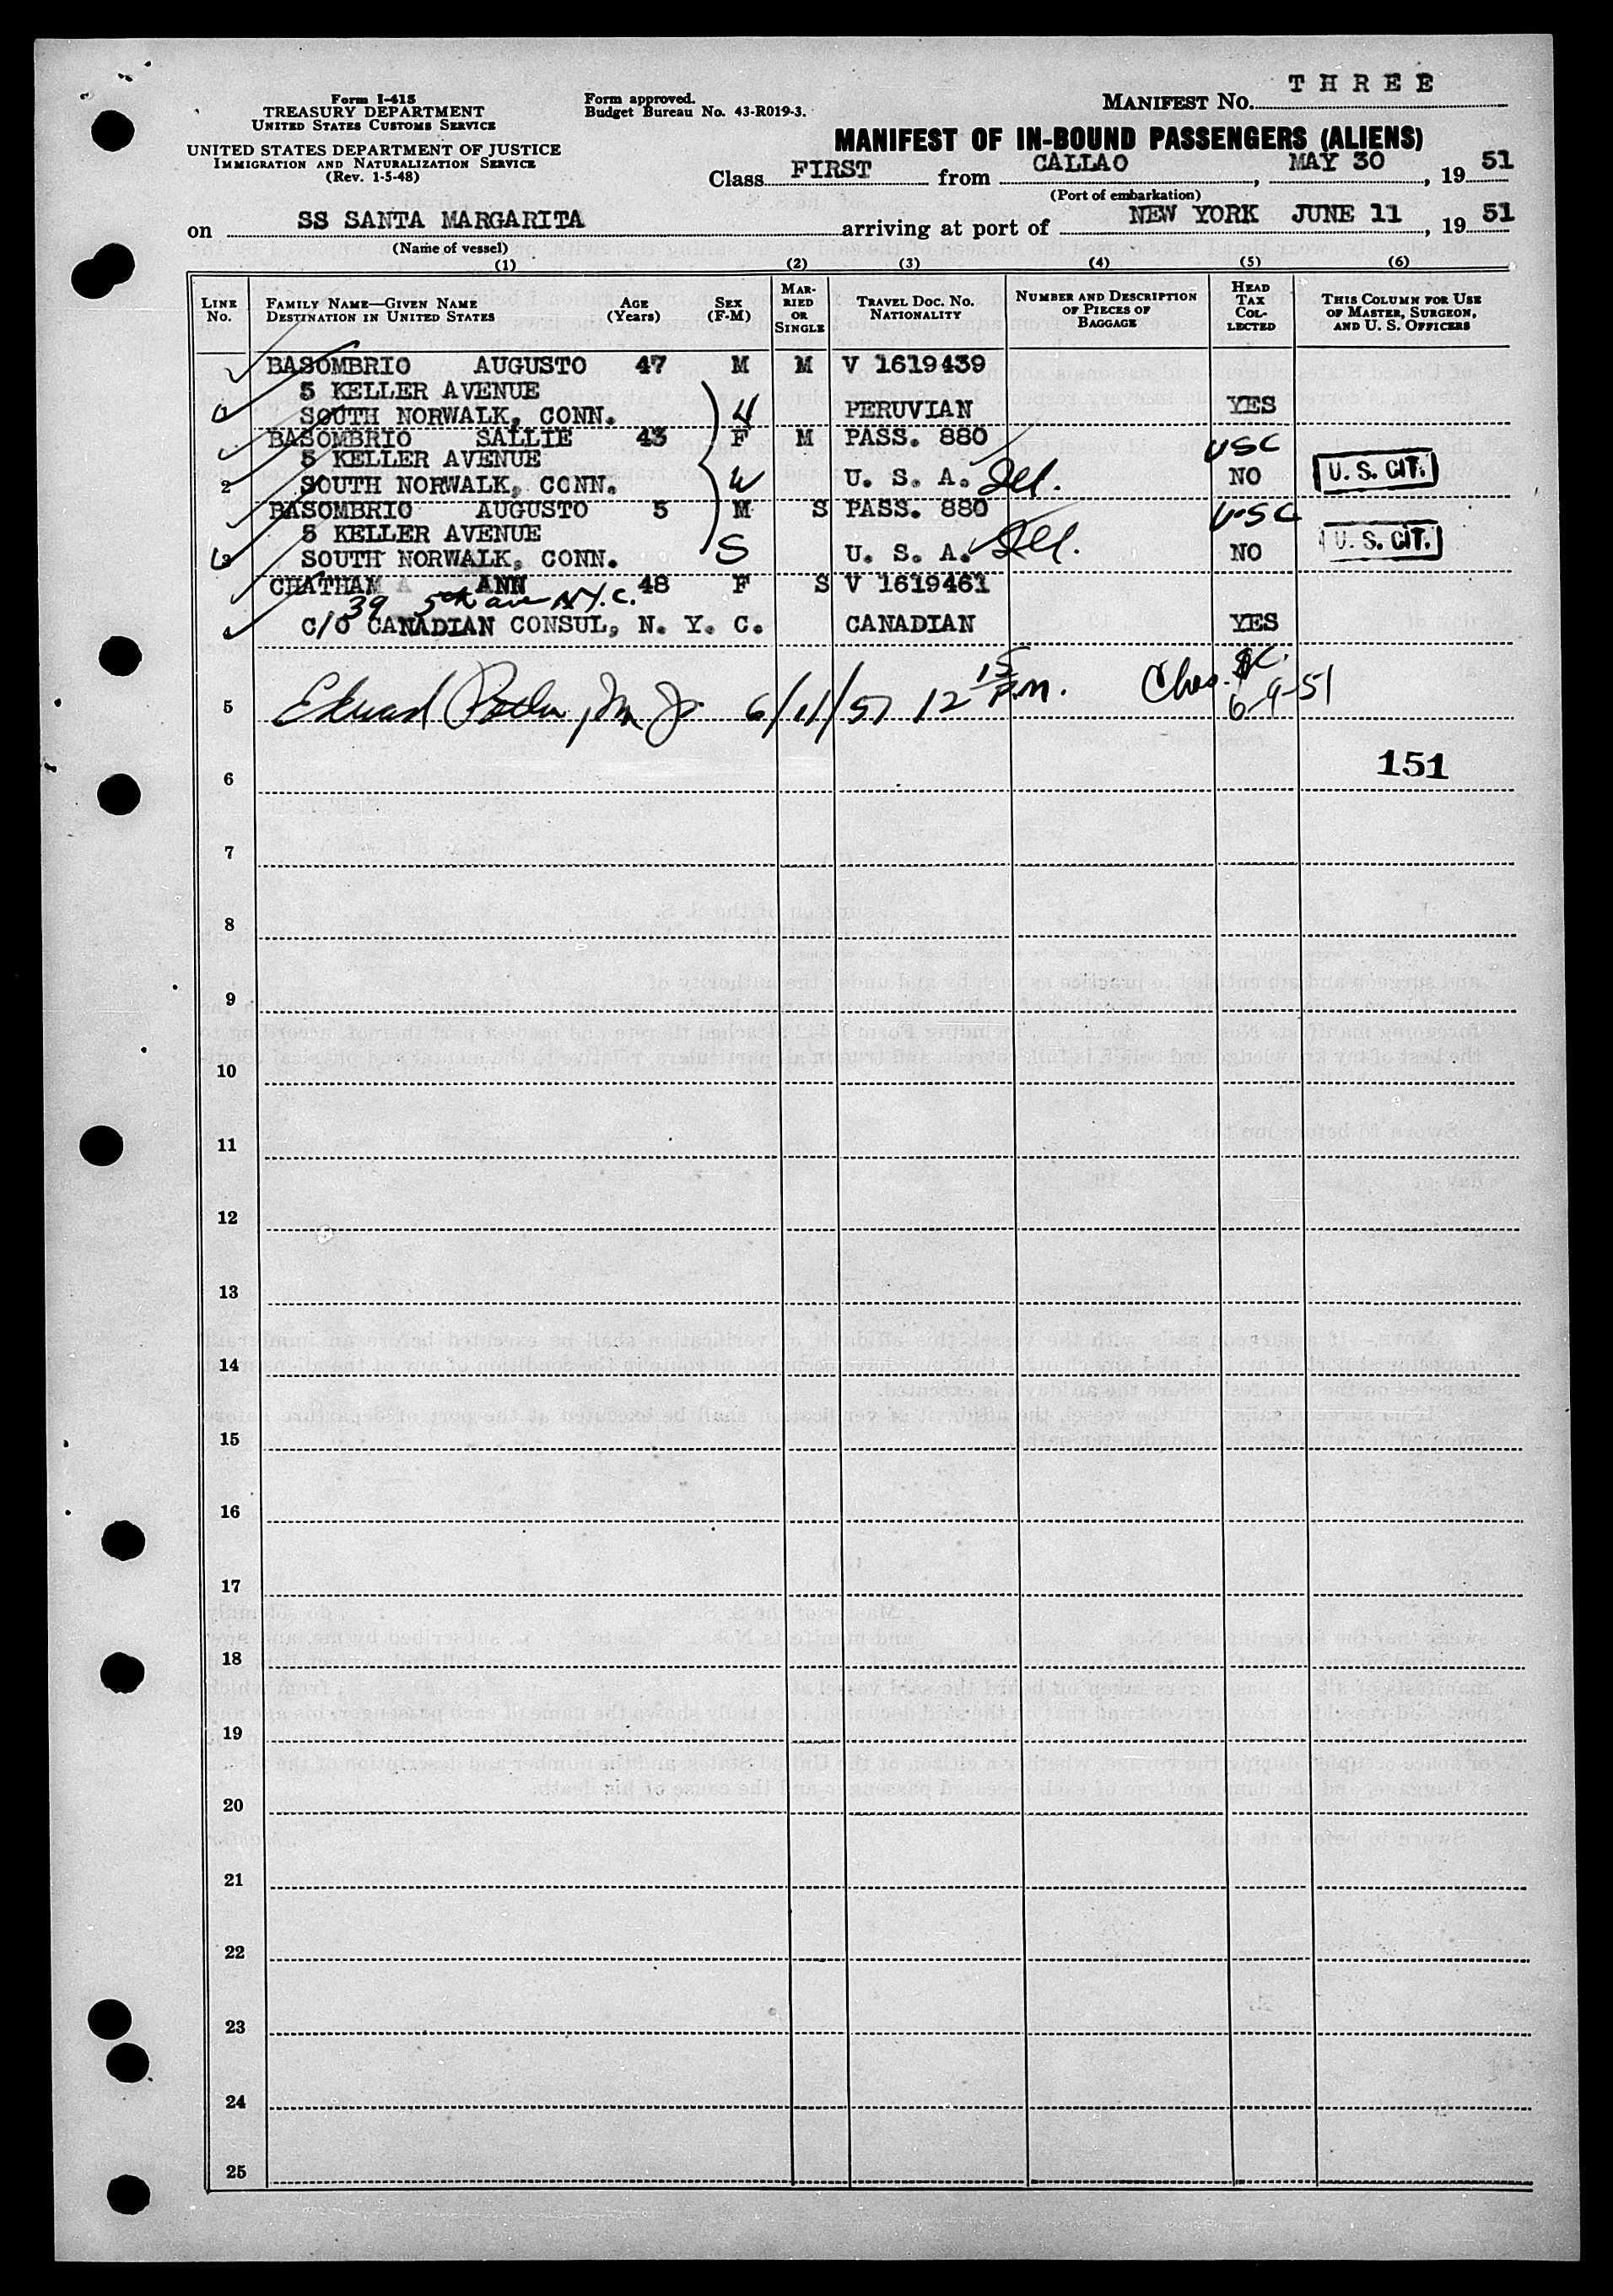 THREE
Form I-415
TREASURY DEPARTMENT
UNITED STATES CUSTOMS SERVICE
UNITED STATES DEPARTMENT OF JUSTICE
IMMIGRATION AND NATURALIZATION SERVICE
(Rev. 1-5-48)
Form approved.
Budget Bureau No. 43-R019-3.
MANIFEST No.
MANIFEST OF IN-BOUND PASSENGERS (ALIENS)
Class FIRST from CALLAO, MAY 30, 1951
(Port of embarkation)
on SS SANTA MARGARITA arriving at port of NEW YORK JUNE 11, 1951
(Name of vessel)
(1) (2) (3) (4) (5) (6)
LINE No.
FAMILY NAME—GIVEN NAME
DESTINATION IN UNITED STATES
AGE (Years)
SEX (F-M)
MARRIED OR SINGLE
TRAVEL DOC. NO. NATIONALITY
NUMBER AND DESCRIPTION OF PIECES OF BAGGAGE
HEAD TAX COLLECTED
THIS COLUMN FOR USE OF MASTER, SURGEON, AND U. S. OFFICERS
BASOMBRIO AUGUSTO 47 M M V 1619439
5 KELLER AVENUE
SOUTH NORWALK, CONN. H PERUVIAN YES
BASOMBRIO SALLIE 43 F M PASS. 880 USC
5 KELLER AVENUE
2 SOUTH NORWALK, CONN. W U. S. A. NO U. S. CIT.
BASOMBRIO AUGUSTO 5 M S PASS. 880 USC
5 KELLER AVENUE
3 SOUTH NORWALK, CONN. S U. S. A. NO U. S. CIT.
CHATHAM A ANN 48 F S V 1619461
39 5th ave N.Y.C.
C/O CANADIAN CONSUL, N. Y. C. CANADIAN YES
5 Edward 6/11/51 12 15 P.M. Chas. 6-9-51
6 151
7
8
9
10
11
12
13
14
15
16
17
18
19
20
21
22
23
24
25